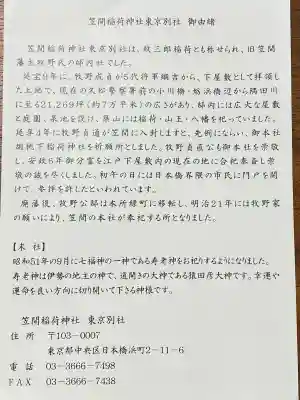 笠間稲荷神社東京別社 御由緒
笠間稲荷神社東京別社は、紋三郎稲荷とも称せられ、旧笠間
藩主牧野氏の邸内社でした。
延宝9年に、牧野成貞が5代将軍綱吉から、下屋敷として拝領し
た土地で、現在の久松警察署前の小川橋・蛎浜橋辺から隅田川
に至る21,269坪(約7万平米)の広さがあり、邸内には広大な屋敷
と庭園、泉池を設け、築山には稲荷・山王・八幡を祀っていました。
延享4年に牧野貞通が笠間に入封しますと、先例にならい、御本社
胡桃下稲荷神社を祈願所としました。牧野貞直公も御本社を崇敬
し、安政6年御分霊を江戸下屋敷内の現在の地に合祀奉斎し崇
敬の誠を尽くしました。初午の日には日本橋界隈の市民に門戸を開
けて、参拝を許したといわれています。
廃藩後、牧野公邸は本所緑町に移転し、明治21年には牧野家
の願いにより、笠間の本社が奉祀する所となりました。
【末 社】
昭和51年の9月に七福神の一神である寿老神をお祀りするようになりました。
寿老神は伊勢の地主の神で、道開きの大神である猿田彦大神です。幸運や
運命を良い方向に切り開いて下さる神様です。
笠間稲荷神社 東京別社
住 所 〒103-0007
東京都中央区日本橋浜町2-11-6
電 話 03-3666-7498
FAX 03-3666-7438